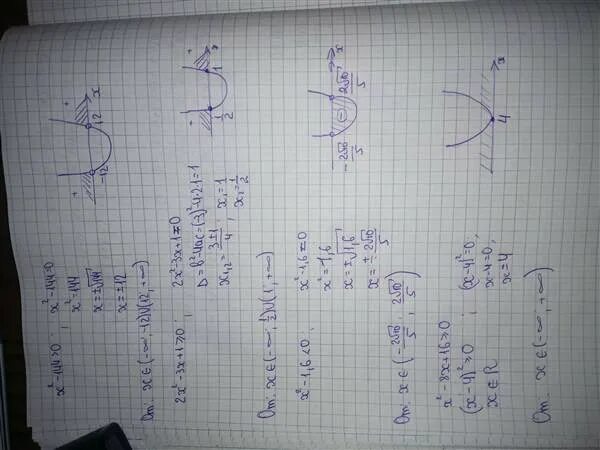 x²-144>0 ; x²-144=0
x²=144
x=±√144
x=±12
+ +
-12 12 x
От: x∈(-∞;-12)∪(12;+∞)
2x²-3x+1≥0 ; 2x²-3x+1=0
D=b²-4ac=(-3)²-4·2·1=1
x₁,₂=3±1/4 ; x₁=1 ; x₂=1/2
+ +
1/2 1 x
От: x∈(-∞;1/2)∪(1;+∞)
x²-1,6<0 ; x²-1,6=0
x²=1,6
x=±√1,6
x=±2√10/5
-2√10/5 2√10/5 x
От: x∈(-2√10/5 ; 2√10/5)
x²-8x+16≥0
(x-4)²≥0 ; (x-4)²=0,
x∈R x-4=0,
x=4
4 x
От: x∈(-∞;+∞)